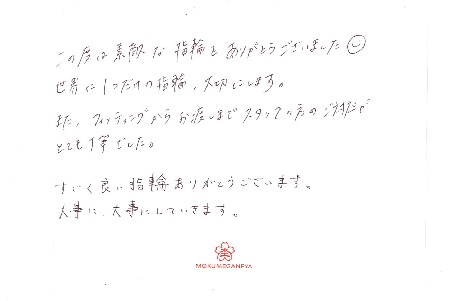 この度は素敵な指輪をありがとうございました
世界に1つだけの指輪、大切にします。
また、フィッティングからお渡しまでスタッフの方のご対応が
とても丁寧でした。
すごく良い指輪ありがとうございます。
大事に、大事にしていきます。
MOKUMEGANEYA